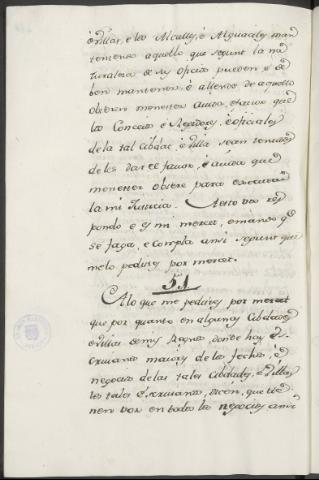 é villas, é los Alcalles, é Alguaciles man
tenienso aquello, que segunt la na
turaleza de sus oficios pueden é de
ben mantener, é allende de aquello
obieren menester aiuda, é favor que
los Concejos é Regidores, é oficiales
de la tal Cibdat, é villa sean tenudos
de les dar el favor, é aiuda que
menester obiere para executar
la mi Justicia. A esto vos res
pondo é es mi mercet, é mando qe
se faga, é compla ansi segunt que
me lo pedistes por mercet.
51
A lo que me pedistes por mercet
que por quanto en algunas Cibdades
é villas de mis Regnos, donde hay Es
crivanos maiores de los fechos, é
negocios de las tales Cibdades, é villas
los tales Escrivanos, dicen, que tie
nen vos en todos los negocios ansi